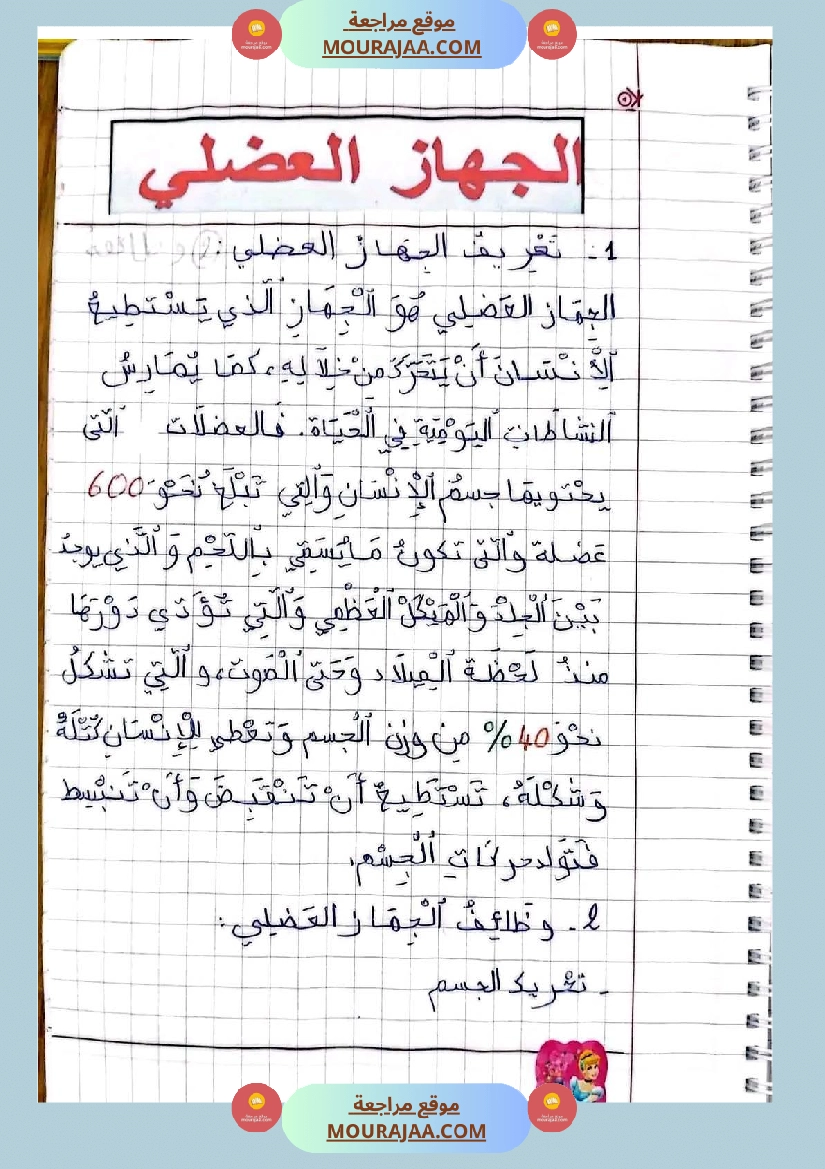 موقع مراجعة
MOURAJAA.COM
الجهاز العضلي
1- تَعْرِيفُ الجهَازُ العضلي:
الجِهَاز العَضَلِي هُوَ ٱلْجِهَازِ ٱلَّذي يَسْتَطِيعُ
ٱلْإِنْسَانَ أَنْ يَتَحَرَّكَ مِنْ خِلَالِهِ، كمَا يُمَارِسُ
ٱلنشاطات ٱليَوْمِيَّةِ فِي ٱلْحَيَاة. فَالعضلَات ٱلّتى
يحْتويهَا جسمُ ٱلْإِنْسَانِ وَٱلتِي تَبْلُغُ نَحْوَ 600
عَضلة وٱلّتى تكونُ مَا يُسَمَّى بِٱللَّحْمِ وَٱلَّذِي يوجدُ
بَيْنَ ٱلْجِلْدْ وَٱلْهَيْكَلْ ٱلْعَظْمِي وَٱلَّتِي تُؤَدّي دَوْرَهَا
منذُ لَحْظَة ٱلْمِيلَاد وَحَتى ٱلْمَوت، و ٱلّتِي تشكلُ
نحْوَ 40% مِن وزن ٱلْجسم وَتعْطي لِلْإِنْسَانِ كُتْلَةً
وَشَكْلَهُ، تَسْتَطِيعُ أَنْ تَنْقَبِضَ وَأَنْ تَنْبَسِط
فَتوَلد حركَاتِ ٱلْجِسْم.
2- وظَائِفُ ٱلْجِهَاز العَضلِي:
- تحْريك الجسم
موقع مراجعة
MOURAJAA.COM